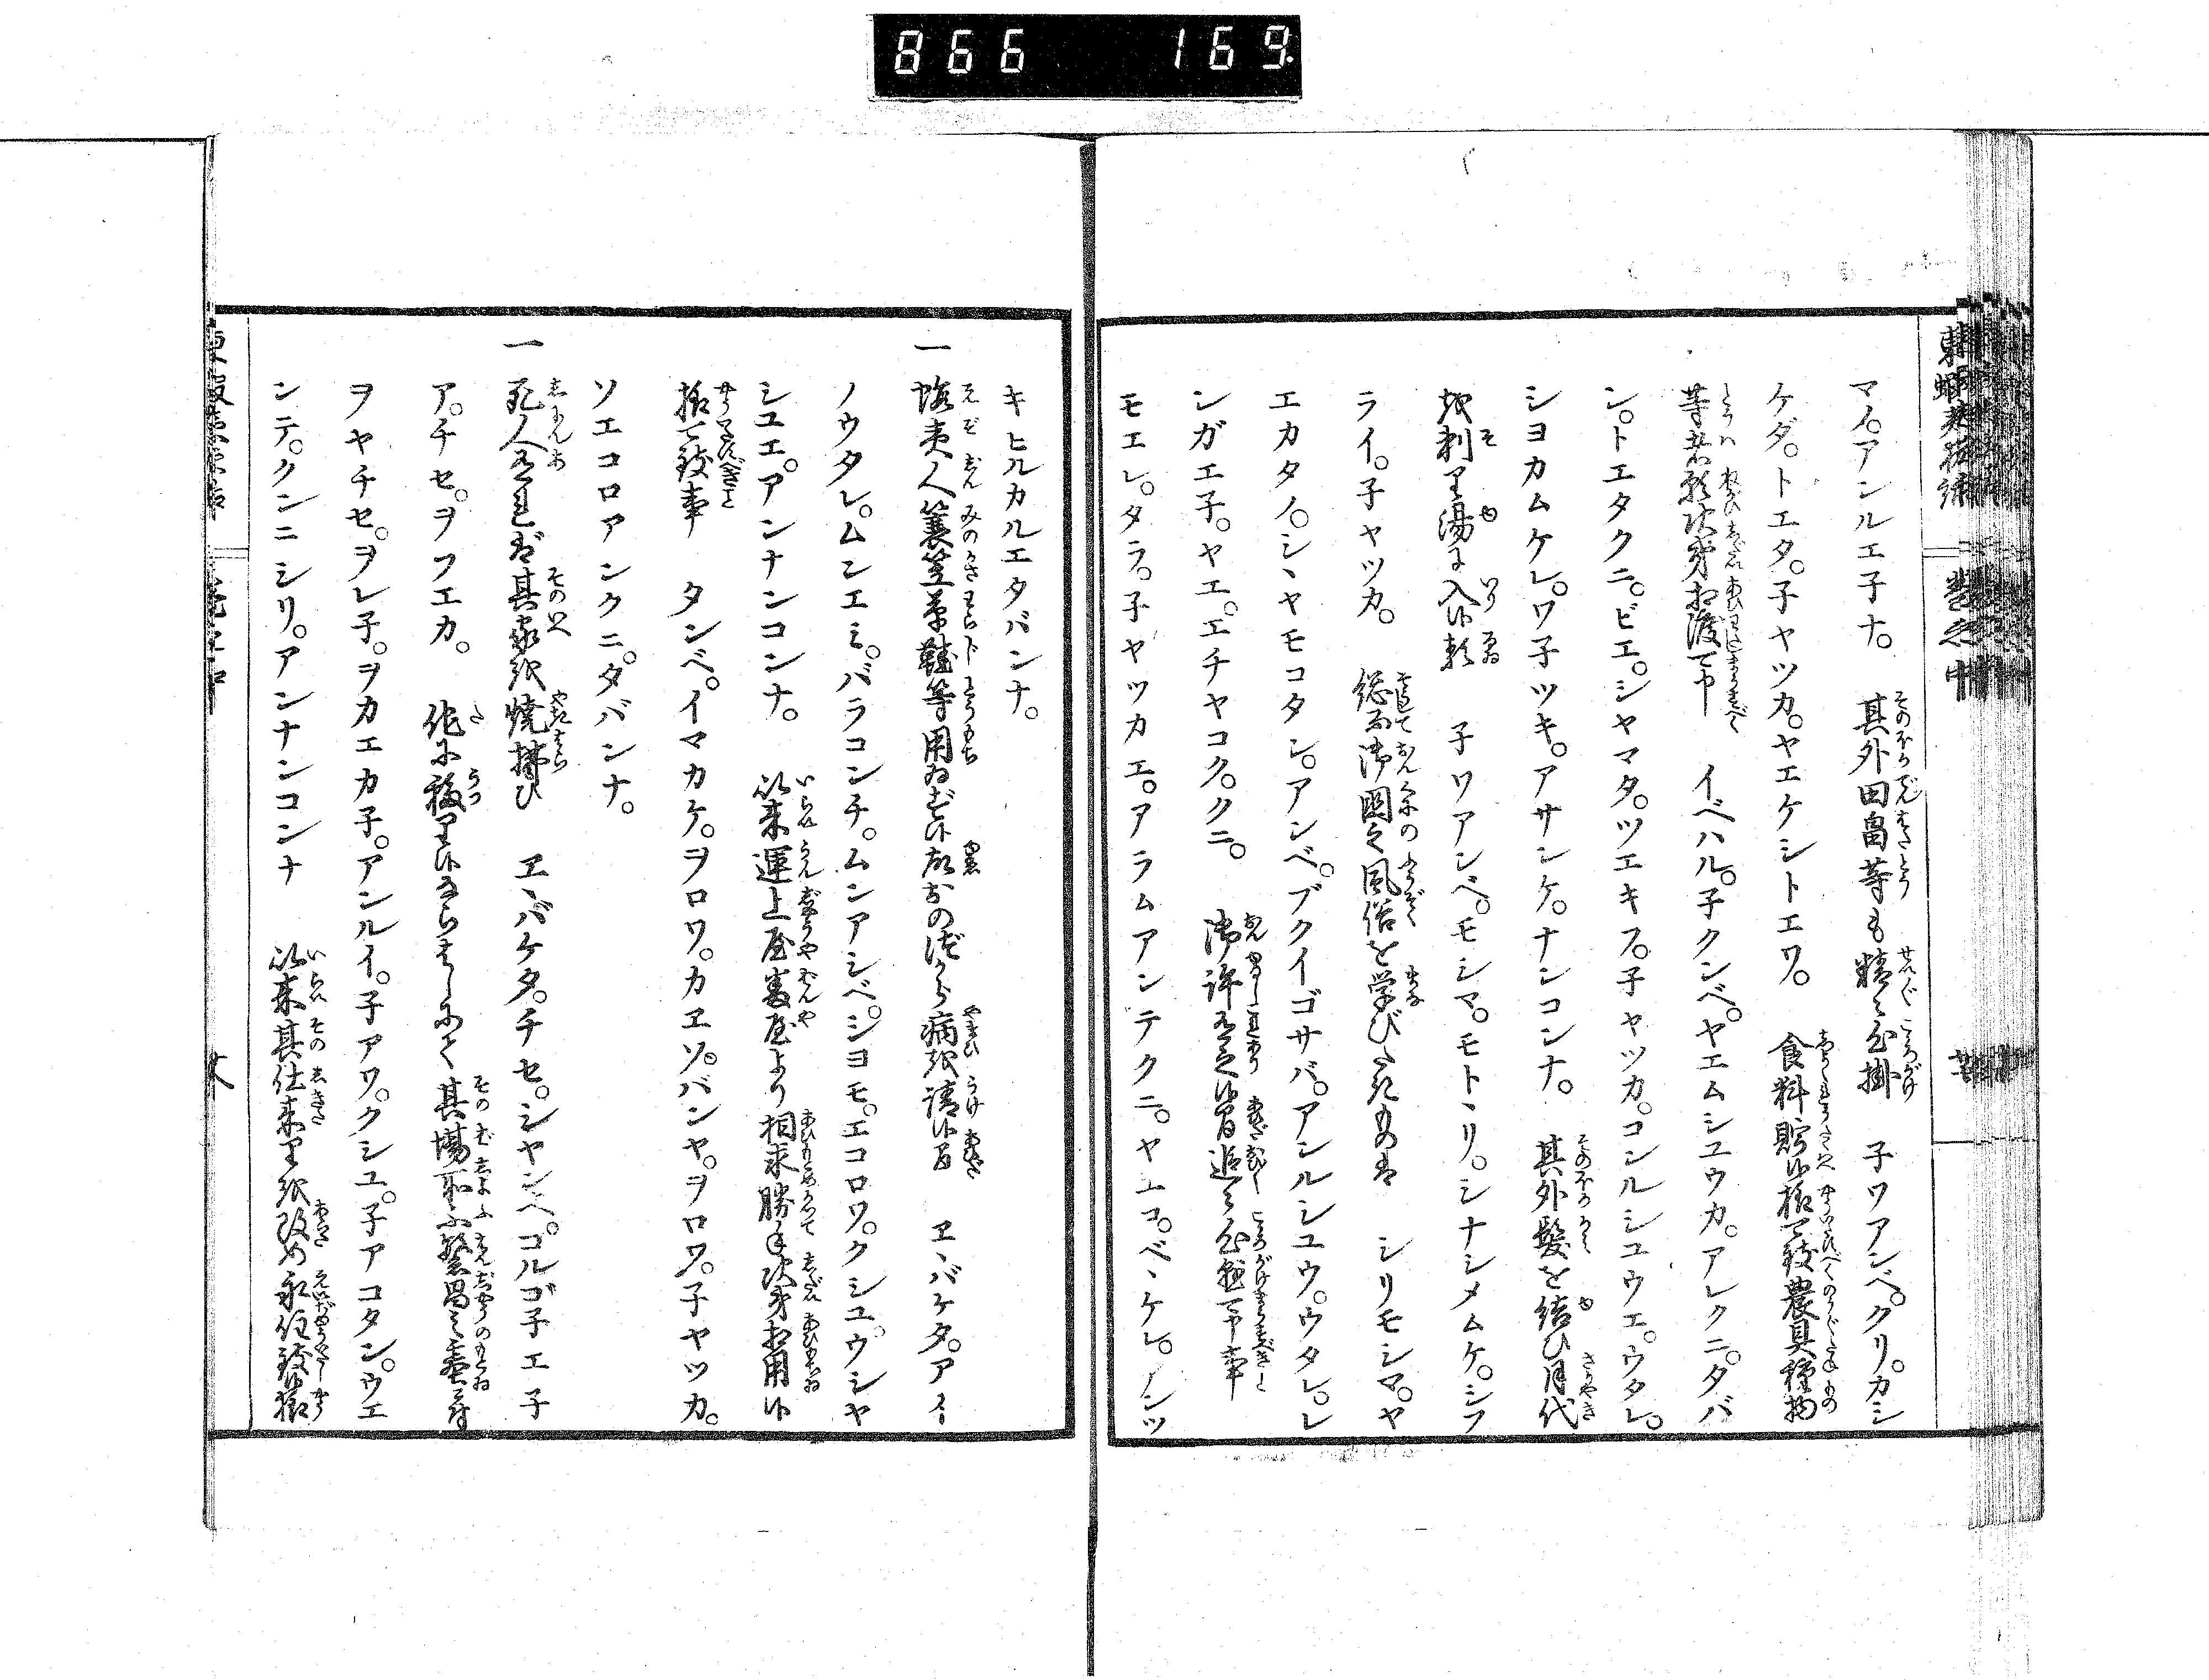 866 169.
東蝦夷夜話 巻之中
マノ。アンルエ子ナ。 其外田畠等も精々心掛 子ワアンベ。クリ。カシ
ケダ。トエタ。子ヤツカ。ヤエケシトエワ。 食料貯候様可致農具種物
等者願次第相渡可申 イベハル。子クンベ。ヤエムシユウカ。アレクニ。タバ
ン。トエタクニ。ビエ。シヤマタ。ツエキフ。子ヤツカ。コンルシユウエ。ウタレ。
シヨカムケレ。ワ子ツキ。アサンケ。ナンコンナ。 其外髪を結ひ月代
越剃里湯に入候類 子ワアンベ。モシマ。モトヽリ。シナシメムケ。シフ
ライ。子ヤツカ。 総而御国之風俗を学びたきものは シリモシマ。ヤ
エカタノ。シヽヤモコタン。アンベ。ブクイゴサバ。アシルシユウ。ウタレ。レ
ンガエ子。ヤエ。エチヤコク。クニ。 御許有之候間追々心懸可申事
モエレ。タラ。子ヤツカエ。アラムアンテクニ。ヤエコ。ベヽケレ。ノンツ
キヒルカルエタバンナ。
一 蝦夷人簑笠草鞋等用ゐず候故おのづから病越請候間 ヱヽバケタ。アイ
ノウタレ。ムンエミ。バラコンチ。ムンアシベ。シヨモ。エコロワ。クシユウシヤ
シユエ。アンナンコンナ。 以来運上屋番屋より相求勝手次第相用候
様可致事 タンベ。イマカケ。ヲロワ。カエソ。バンヤ。ヲロワ。子ヤツカ。
ソエコロアンクニ。タバンナ。
一 死人有之其家越焼拂ひ ヱヽバケタ。チセ。シヤンベ。ゴルゴ子エ子
ア。チセ。ヲフエカ。 他に移里候ならはしにて其場所不繁昌之基に付
ヲヤチセ。ヲレ子。ヲカエカ子。アンルイ。子アワ。クシユ。子アコタン。ウエ
ンテ。クンニシリ。アンナンコンナ 以来其仕来里越改め永住致候様